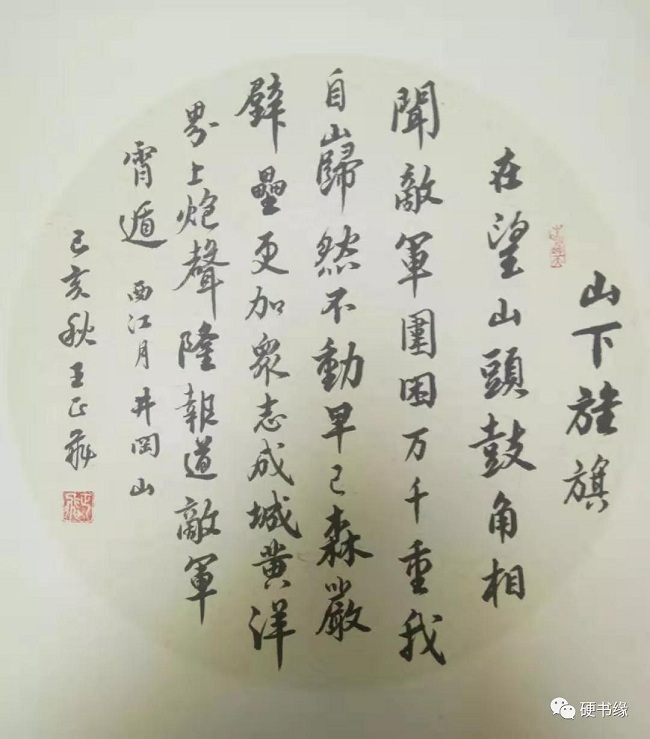 山下旌旗
在望山頭鼓角相
聞敵軍圍困万千重我
自巋然不動早已森嚴
壁壘更加衆志成城黄洋
界上炮聲隆報道敵軍
宵遁 西江月 井岡山
己亥秋王正
硬书缘